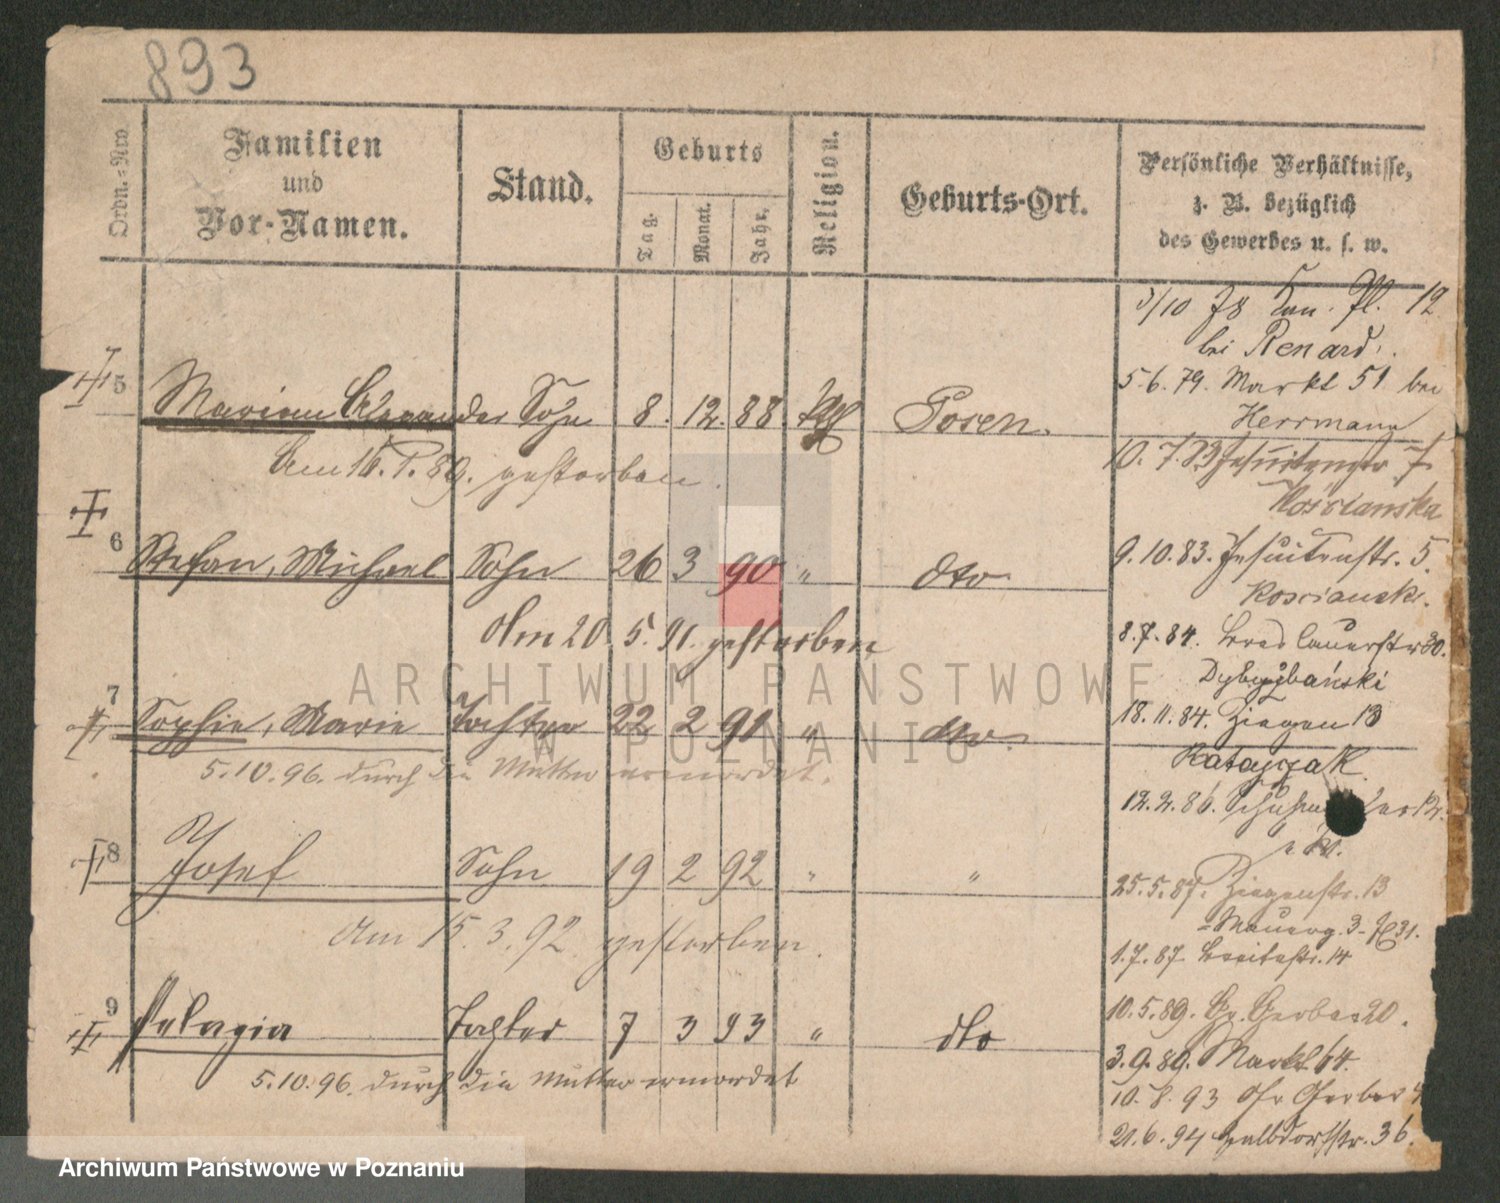 893
Ordn.-Nro.
Familien
und
Vor-Namen.
Stand.
Geburts
Tag.
Monat.
Jahr.
Religion.
Geburts-Ort.
Persönliche Verhältnisse,
z. B. bezüglich
des Gewerbes u. s. w.
5 Marian Alexander Sohn 8. 12. 88. Posen.
Am 16. 1. 89. gestorben.
6 Stefan, Michael Sohn 26 3 90 " dto
Am 20. 5. 91. gestorben
7 Sophie, Marie Tochter 22 2 91 " dto.
5.10.96. durch die Mutter ermordet.
8 Josef Sohn 19 2 92 " "
Am 15. 3. 92. gestorben.
9 Pelagia Tochter 7 3 93 " dto
5.10.96. durch die Mutter ermordet
/10 78 Kan. Pl. 12
bei Renard.
5.6.79. Markt 51 bei
Herrmann
10.7.83 Jesuitenstr 5
Kościanska
9.10.83. Jesuitenstr. 5.
Kościanski.
8.7.84.
Dybizbański
18.11.84. Ziegen 13
Katajczak
12.2.86.
25.5.87. Ziegenstr. 13
1.7.87 Breitestr. 14
10.5.89. Gr. Gerber 20.
3.9.89. Markt 64.
10.8.93 Gr Gerber
21.6.94 Halbdorfstr. 36.
ARCHIWUM PAŃSTWOWE
W POZNANIU
Archiwum Państwowe w Poznaniu